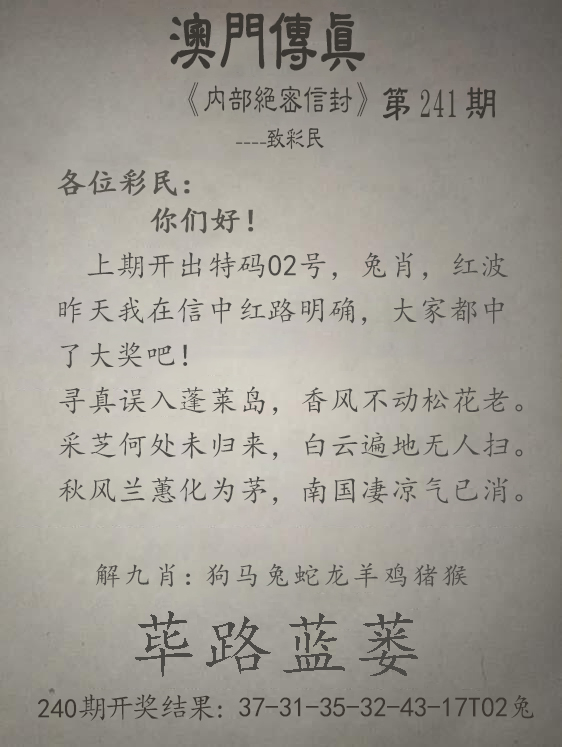 澳門傳眞
《内部絕密信封》第241期
----致彩民
各位彩民：
你们好！
上期开出特码02号，兔肖，红波
昨天我在信中红路明确，大家都中
了大奖吧！
寻真误入蓬莱岛，香风不动松花老。
采芝何处未归来，白云遍地无人扫。
秋风兰蕙化为茅，南国凄凉气已消。
解九肖：狗马兔蛇龙羊鸡猪猴
荜路蓝蒌
240期开奖结果：37-31-35-32-43-17T02兔